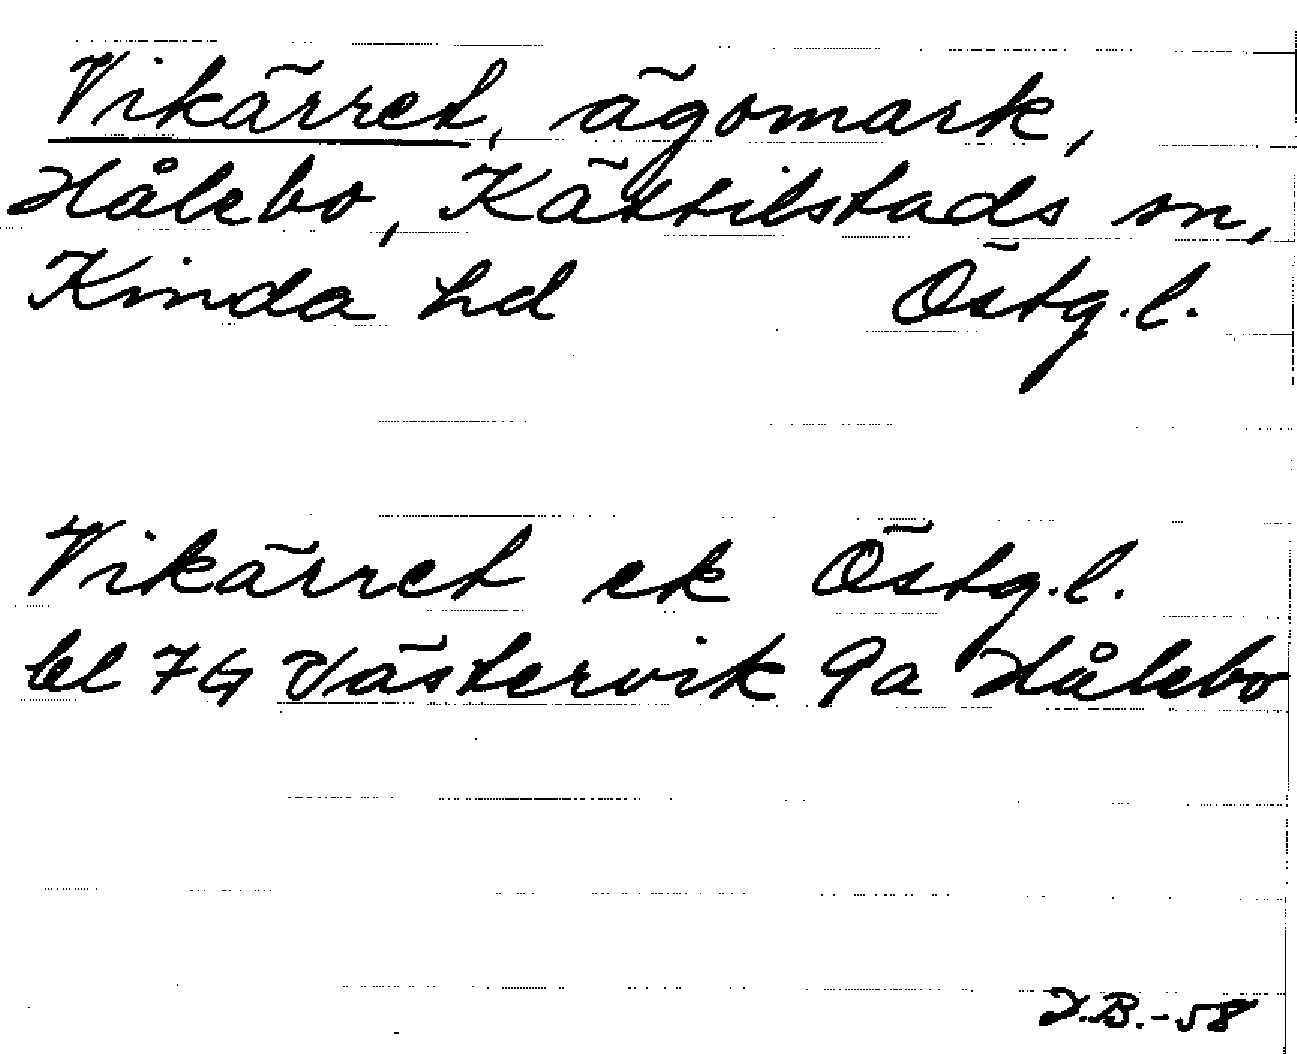 Vikärret, ägomark,
Hålebo, Kättilstads sn,
Kinda hd Östg.l.
Vikärret ek Östg.l.
bl 7G Västervik 9a Hålebo
I.B.-58